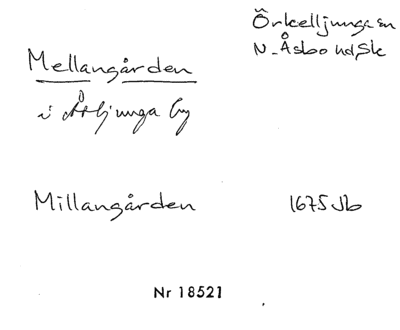 Örkelljunga sn
N. Åsbo hd, Sk
Mellangården
i Åsljunga by
Millangården 1675 Jb
Nr 18521